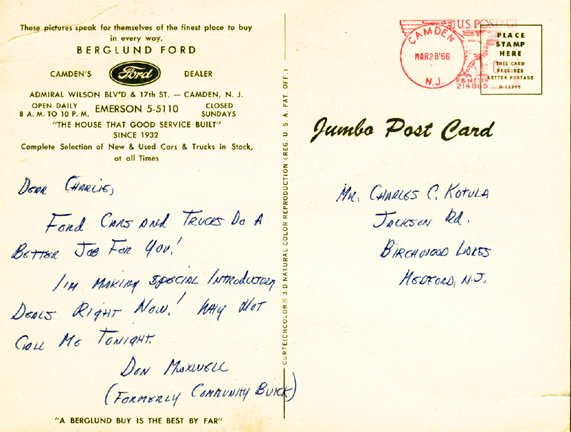 These pictures speak for themselves of the finest place to buy
in every way.
BERGLUND FORD
CAMDEN'S Ford DEALER
ADMIRAL WILSON BLV'D & 17th ST. — CAMDEN, N. J.
OPEN DAILY
8 A. M. TO 10 P. M.
EMERSON 5-5110
CLOSED
SUNDAYS
"THE HOUSE THAT GOOD SERVICE BUILT"
SINCE 1932
Complete Selection of New & Used Cars & Trucks in Stock,
at all Times
Dear Charlie,
Ford Cars and Trucks Do A
Better Job For You!
I'm Making Special Introductory
Deals Right Now! Why Not
Call Me Tonight.
Don Maxwell
(Formerly Community Buick)
"A BERGLUND BUY IS THE BEST BY FAR"
CURTEICHCOLOR® 3-D NATURAL COLOR REPRODUCTION (REG. U. S. A. PAT. OFF.)
U.S. POSTAGE
CAMDEN
MAR 28 '66
N.J.
P.B. METER
214865
PLACE
STAMP
HERE
THIS CARD
REQUIRES
LETTER POSTAGE
Jumbo Post Card
Mr. Charles C. Kotula
Jackson Rd.
Birchwood Lakes
Medford, N.J.